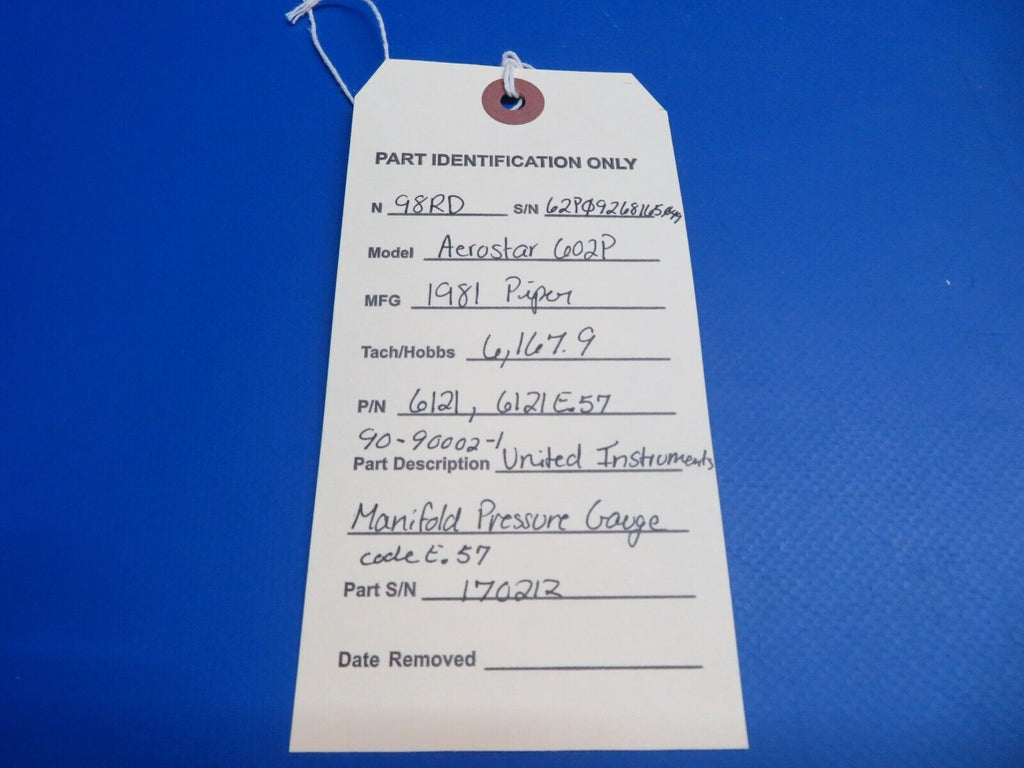 PART IDENTIFICATION ONLY
N 98RD S/N 62PØ9268165Ø49
Model Aerostar 602P
MFG 1981 Piper
Tach/Hobbs 6,167.9
P/N 6121, 6121 E.57
90-90002-1
Part Description United Instruments
Manifold Pressure Gauge
code E.57
Part S/N 170212
Date Removed